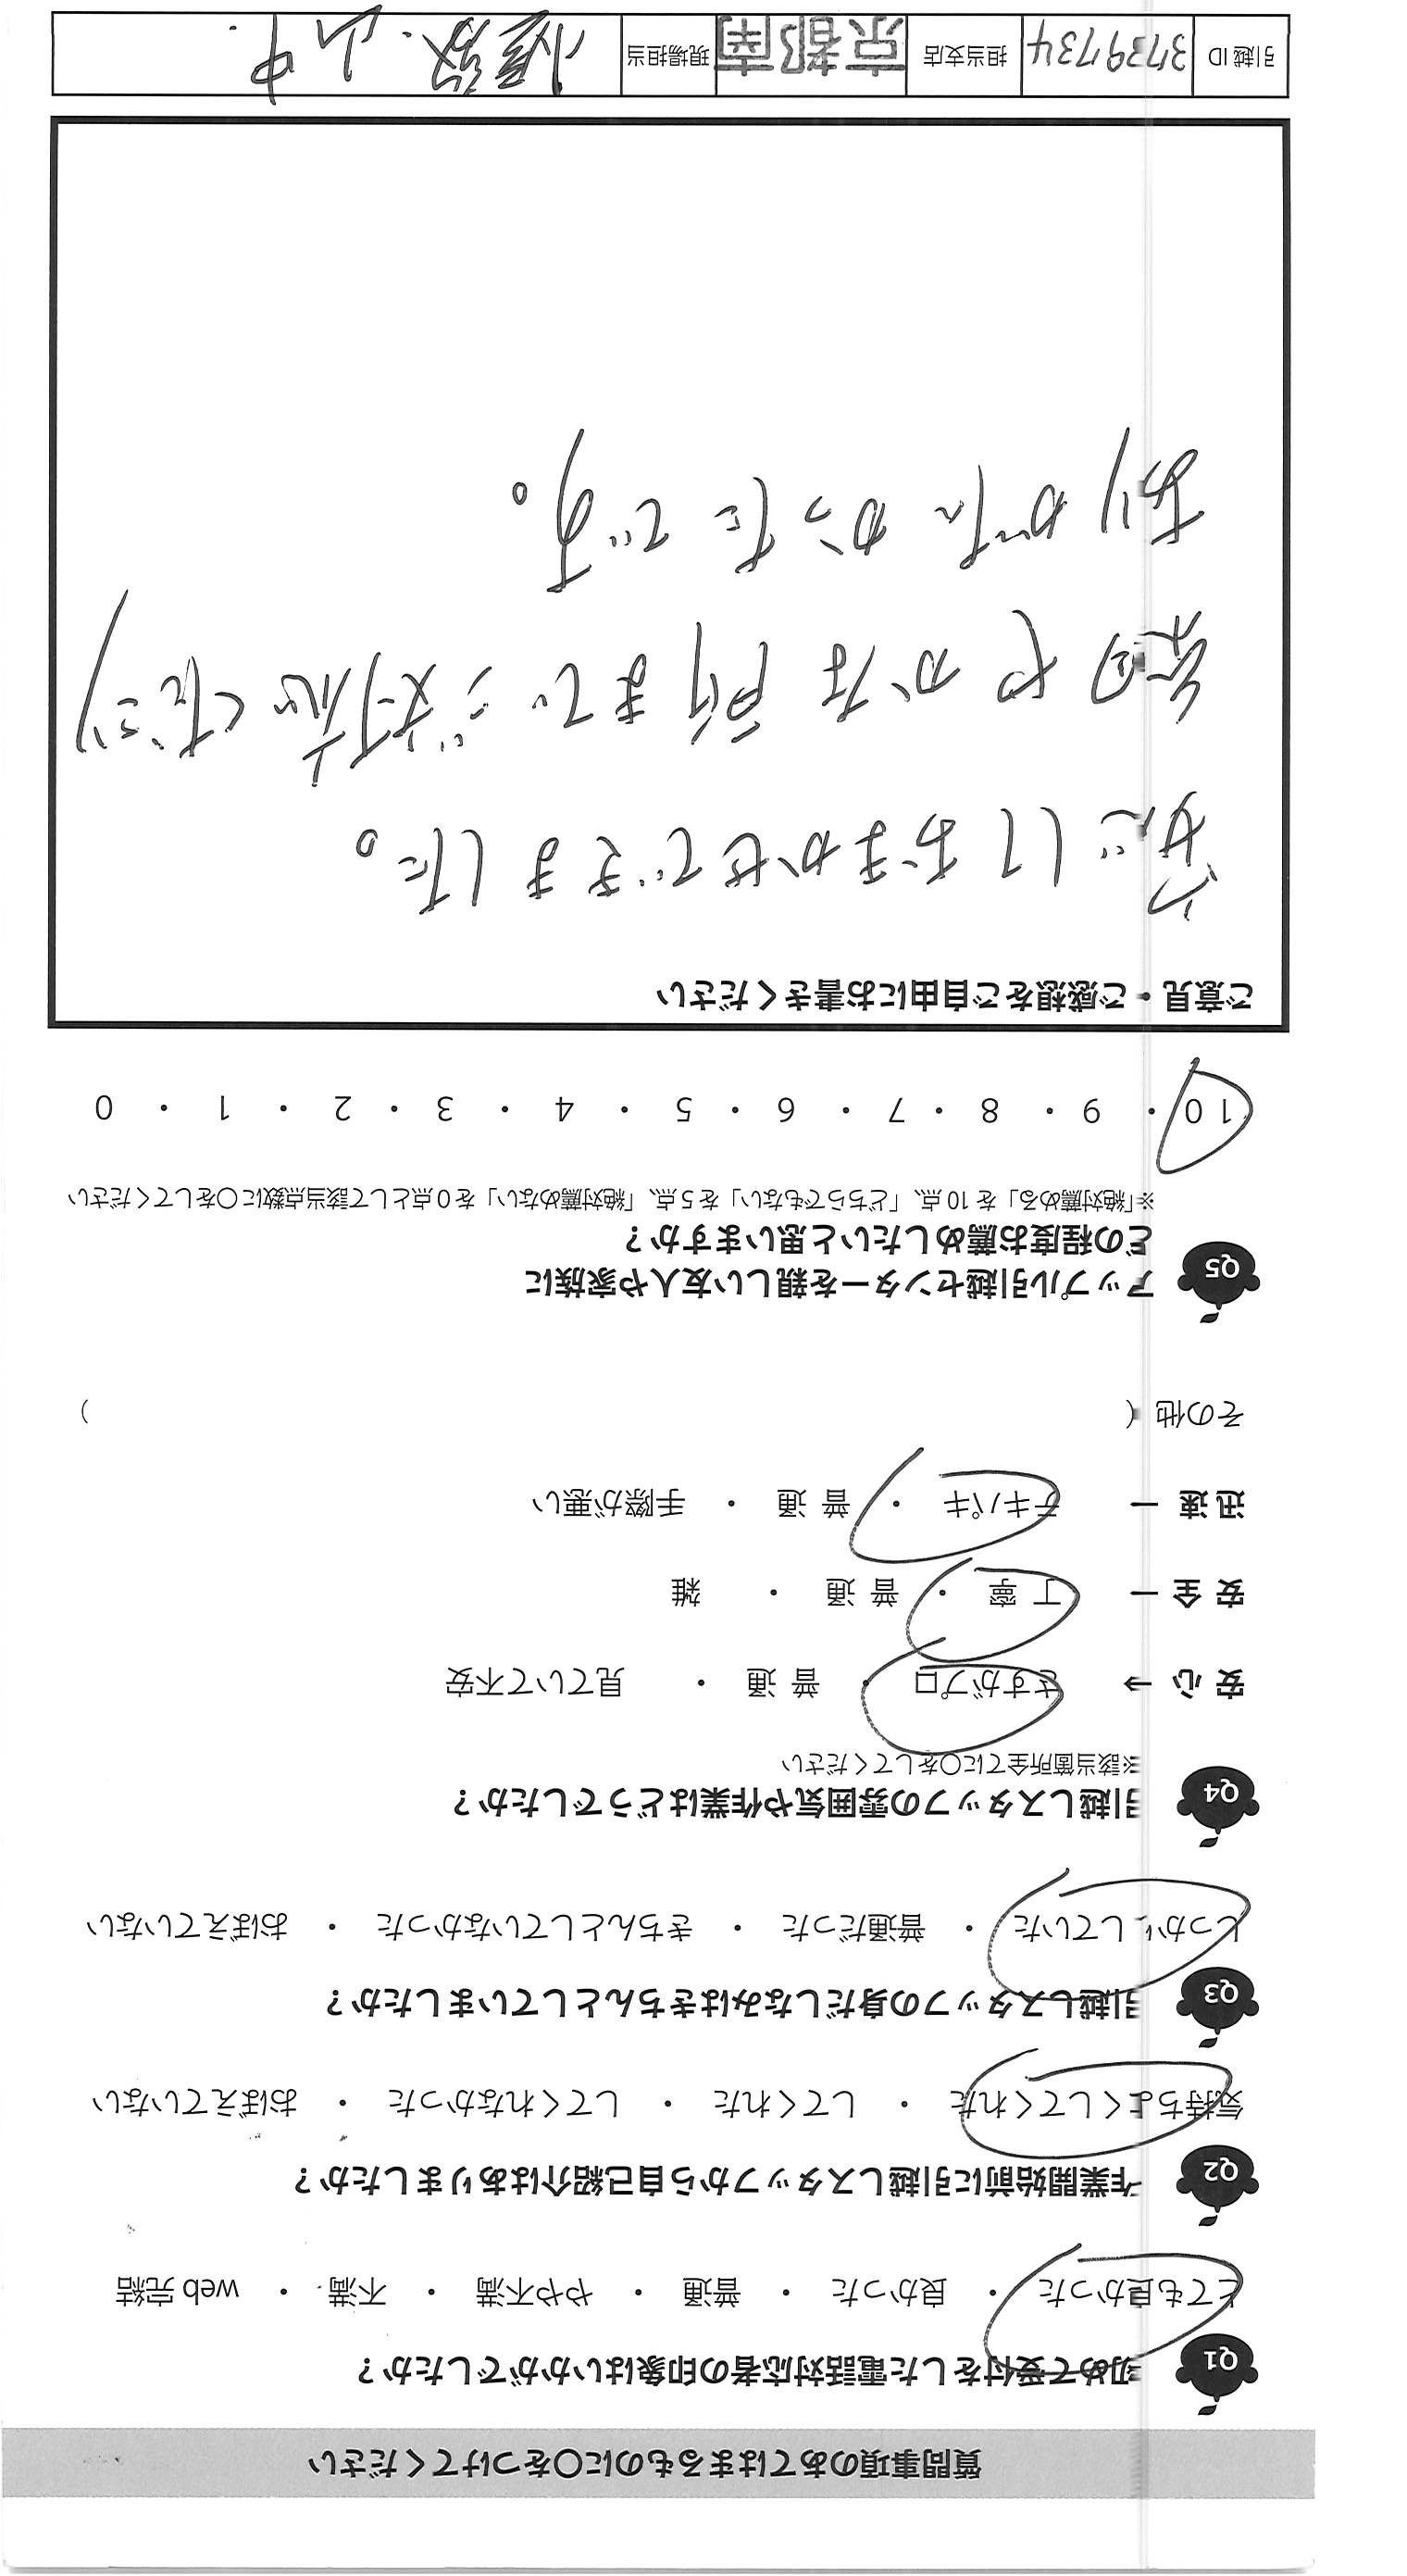 質問事項のあてはまるものに○をつけてください
Q1 初めて受付をした電話対応者の印象はいかがでしたか？
とても良かった ・ 良かった ・ 普通 ・ やや不満 ・ 不満 ・ web 完結
Q2 作業開始前に引越しスタッフから自己紹介はありましたか？
気持ちよくしてくれた ・ してくれた ・ してくれなかった ・ おぼえていない
Q3 引越しスタッフの身だしなみはきちんとしていましたか？
しっかりしていた ・ 普通だった ・ きちんとしていなかった ・ おぼえていない
Q4 引越しスタッフの雰囲気や作業はどうでしたか？
※該当箇所全てに○をしてください
安心 → さすがプロ ・ 普通 ・ 見ていて不安
安全 ー 丁寧 ・ 普通 ・ 雑
迅速 ー テキパキ ・ 普通 ・ 手際が悪い
その他 (                    )
Q5 アップル引越センターを親しい友人や家族に
どの程度お薦めしたいと思いますか？
※「絶対薦める」を 10 点、「どちらでもない」を 5 点、「絶対薦めない」を 0 点として該当点数に○をしてください
10 ・ 9 ・ 8 ・ 7 ・ 6 ・ 5 ・ 4 ・ 3 ・ 2 ・ 1 ・ 0
ご意見・ご感想をご自由にお書きください
おまかせできました。
細やかな所までご対応くださり
ありがたかったです。
引越 ID 3739734 担当支店 京都南 現場担当 山中